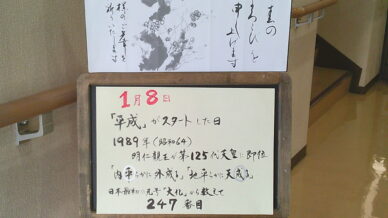 春の
よろこびを
申し上げます
様のご多幸を
祈りいたします
1月8日
「平成」がスタートした日
1989年(昭和64)
明仁親王が第125代天皇に即位
「内平らかに外成る」「地平らかに天成る」
日本最初の元号「大化」から数えて
247番目